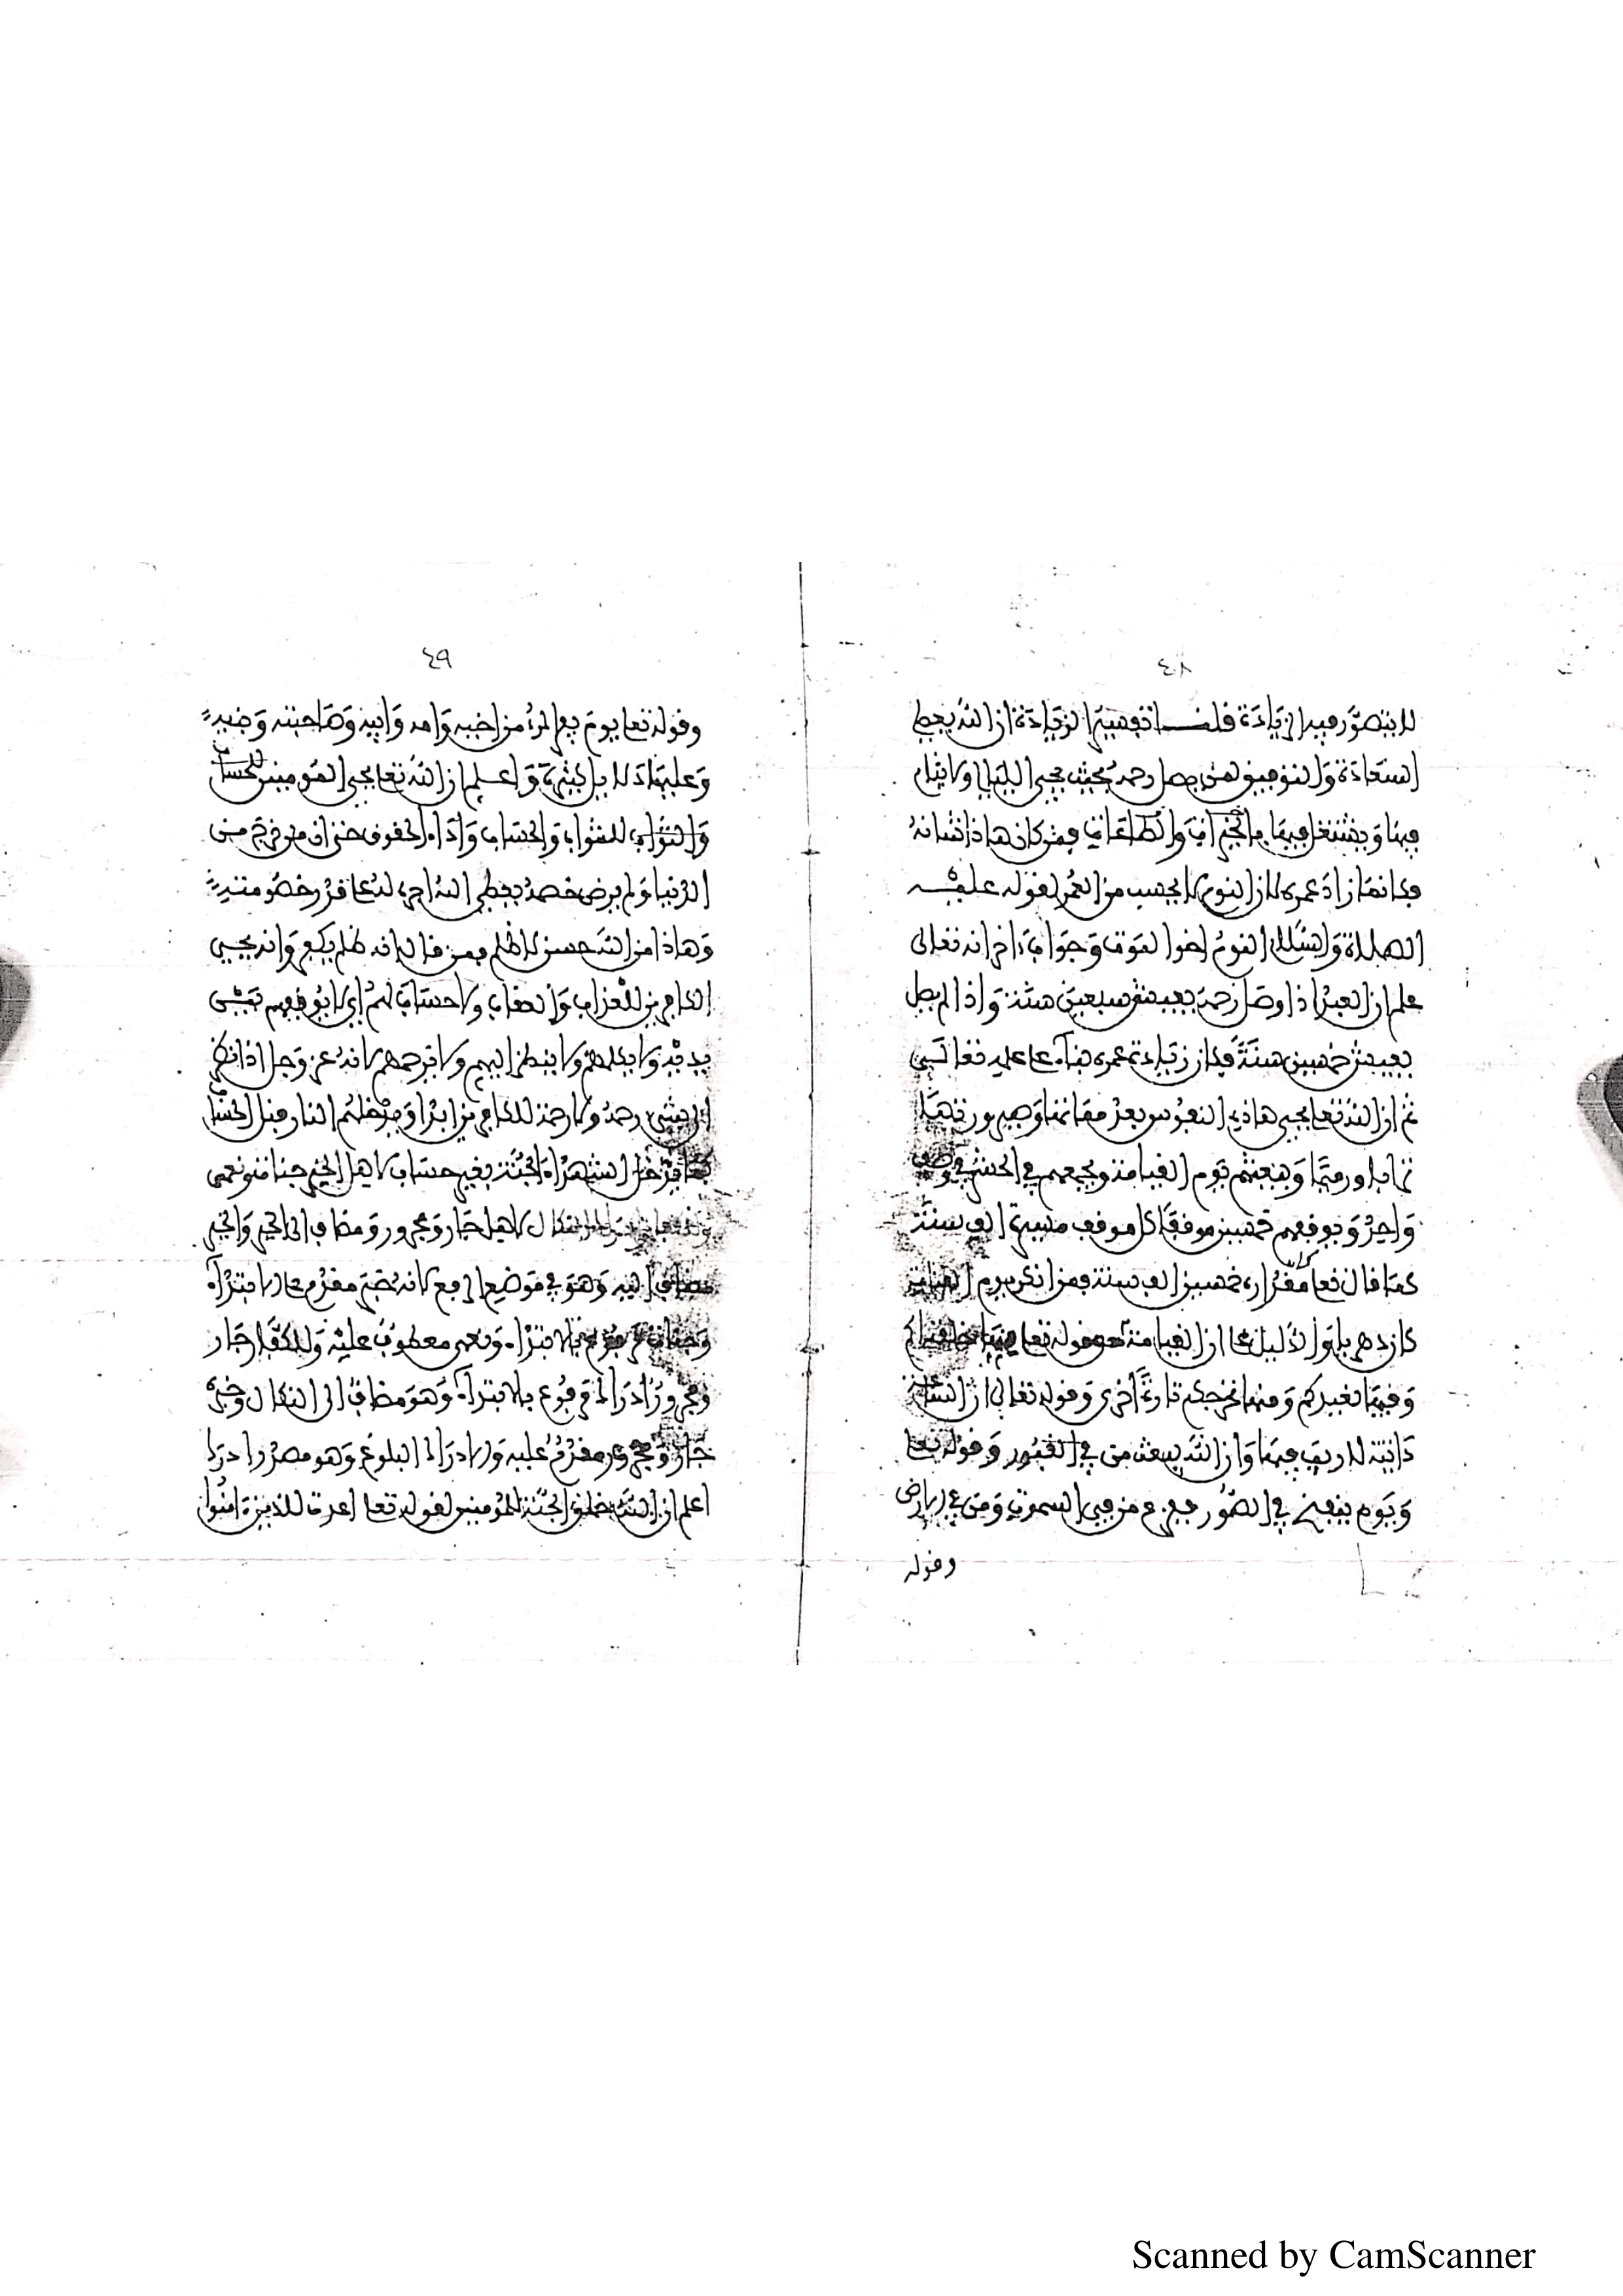 ٤٨
لا يتصور فيه الزيادة قلت تفسير الزيادة ان الله يعطي
السعادة والتوفيق لمن يصل رحمه بحيث يحيى الليالي ولا ينام
فيها ويشتغل فيها بالخيرات والطاعات فمن كان هاذا شانه
فكانما زاد عمره لان النوم لا يحسب من العمر لقوله عليه
الصلاة والسلام النوم اخو الموت وجواب ءاخر انه تعالى
علم ان العبد اذا وصل رحمه يعيش سبعين سنة واذا لم يصل
يعيش خمسين سنة فكان زيادة عمره بناء على علمه تعالى
ثم ان الله تعا يحيي هاذه النفوس بعد مماتها وصيرورتها
ترابا ورميما ويبعثهم يوم القيامة ويجمعهم في الحشر في
واحد ويوقفهم خمسين موقفا كل موقف مسيرة الف سنة
كما قال تعا مقداره خمسين الف سنة فمن انكر يوم القيامة
كان دهريا والدليل على ان القيامة قوله تعا منها خلقناكم
وفيها نعيدكم ومنها نخرجكم تارة اخرى وقوله تعالى ان الساعة
ءاتية لا ريب فيها وان الله يبعث من في القبور وقوله تعا
ويوم ينفخ في الصور ففزع من في السموت ومن في الارض
وقوله
٤٩
وقوله تعا يوم يفر المرء من اخيه وامه وابيه وصاحبته وبنيه
وعليها دلايل كثيرة واعلم ان الله تعا يحيي المومنين للحساب
والثواب والحساب واداء الحقوق حتى ان من خرج من
الدنيا ولم يرض خصمه يعطي الله اجرا له على قدر خصومته
وهاذا من الله حسن لا ظلم فمن قال انه ظلم يكفر وانه يحيي
الكافرين للعذاب والعقاب ولا حساب لهم اي لا يوقفهم بين
يديه ولا يكلمهم ولا ينظر اليهم ولا يرحمهم لانه عز وجل اذا نظر
الى شيء رحمه ولا رحمة للكافرين ابدا ويدخلهم النار قبل الحساب
كما يدخل الشهداء الجنة بغير حساب لاهل الخير جنات ونعمى
النكال لاهل جار ومجرور ومضاف الى الخير والخير
مضاف اليه وهو في موضع الرفع لانه خبر مقدم على الابتداء
وجنات مرفوع بالابتداء ونعمى معطوف عليه وللكفار جار
ومجرور ادراك مرفوع بالابتداء وهو مضاف الى النكال وخبره
جار ومجرور مقدم عليه والادراك البلوغ وهو مصدر ادرك
اعلم ان الله خلق الجنة للمومنين لقوله تعا اعدت للذين ءامنوا
Scanned by CamScanner